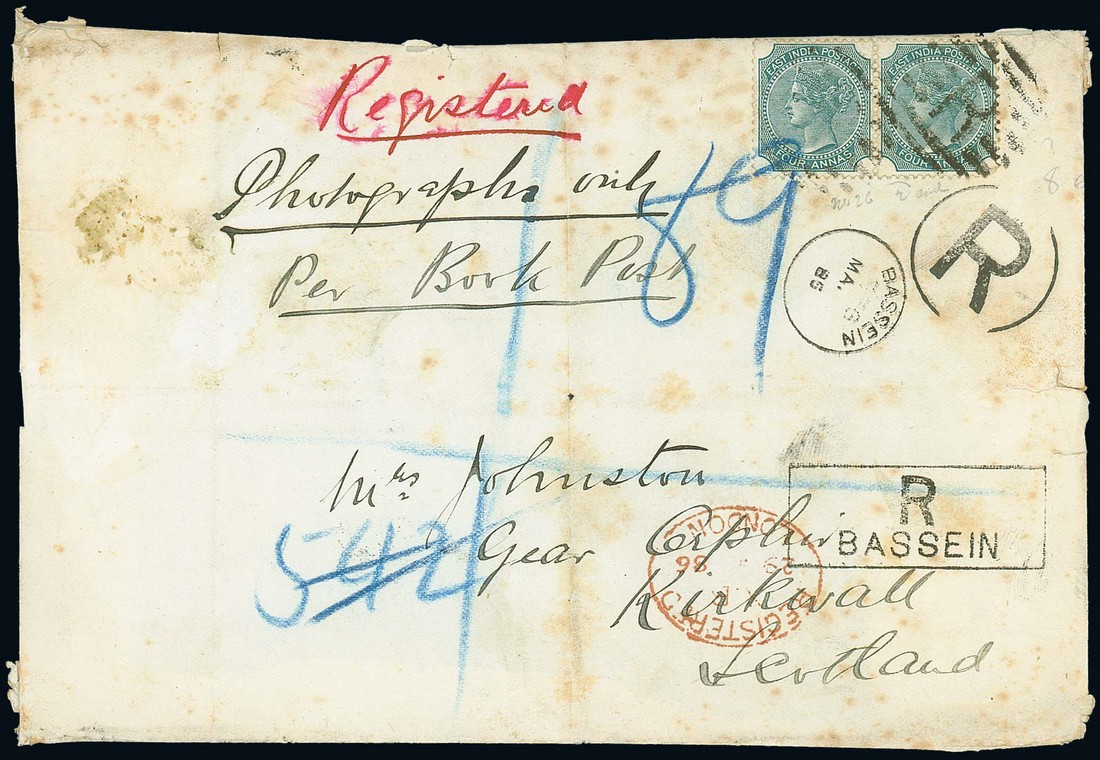 Registered
EAST INDIA POSTAGE
FOUR ANNAS
EAST INDIA POSTAGE
FOUR ANNAS
Photographs only
Per Book Post
89
R
BASSEIN
MA.
86
R
BASSEIN
Mrs Johnston
Gear Orphir
Kirkwall
Scotland
542
REGISTERED
LONDON
29 86